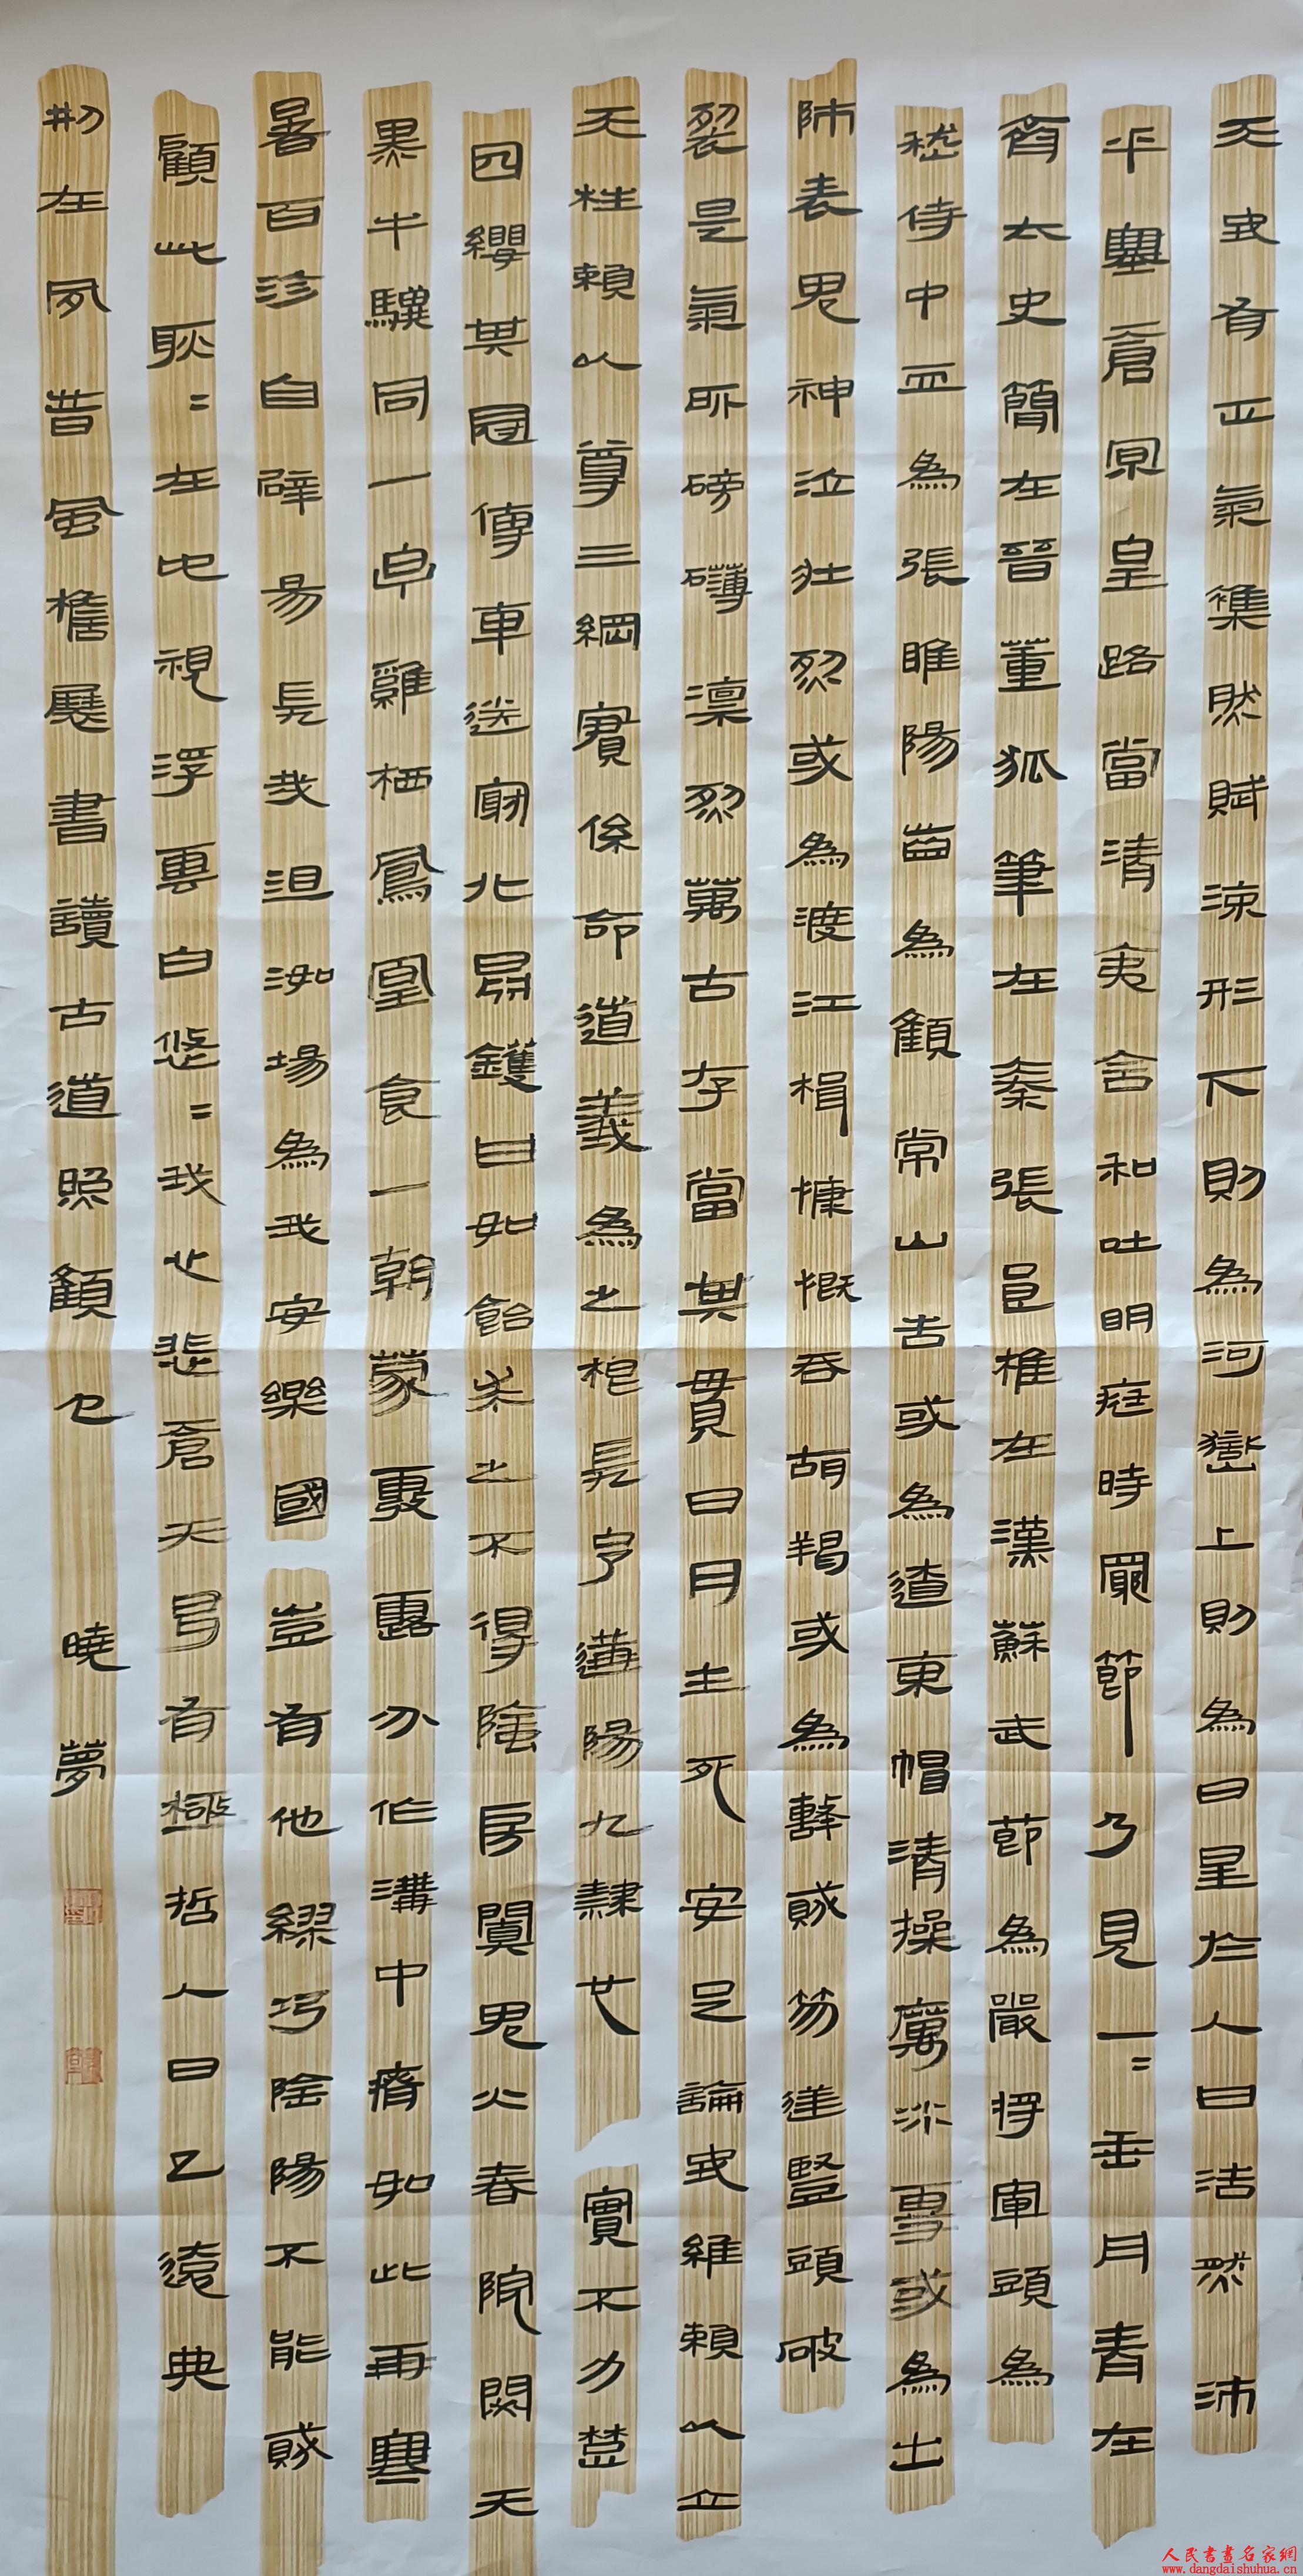 天地有正氣雜然賦流形下則為河嶽上則為日星於人曰浩然沛
乎塞蒼冥皇路當清夷含和吐明庭時窮節乃見一=垂丹青在
齊太史簡在晉董狐筆在秦張良椎在漢蘇武節為嚴將軍頭為
嵇侍中血為張睢陽齒為顏常山舌或為遼東帽清操厲冰雪或為出
師表鬼神泣壯烈或為渡江楫慷慨吞胡羯或為擊賊笏逆豎頭破
裂是氣所磅礴凜烈萬古存當其貫日月生死安足論地維賴以立
天柱賴以尊三綱實係命道義為之根嗟予遘陽九隸也實不力楚
囚纓其冠傳車送窮北鼎鑊甘如飴求之不得陰房闃鬼火春院閟天
黑牛驥同一皁雞栖鳳凰食一朝蒙霧露分作溝中瘠如此再寒
暑百沴自辟易哀哉沮洳場為我安樂國豈有他繆巧陰陽不能賊
顧此耿=在仰視浮雲白悠=我心悲蒼天曷有極哲人日已遠典
刑在夙昔風檐展書讀古道照顏色 曉夢
人民書畫名家網
www.dangdaishuhua.cn